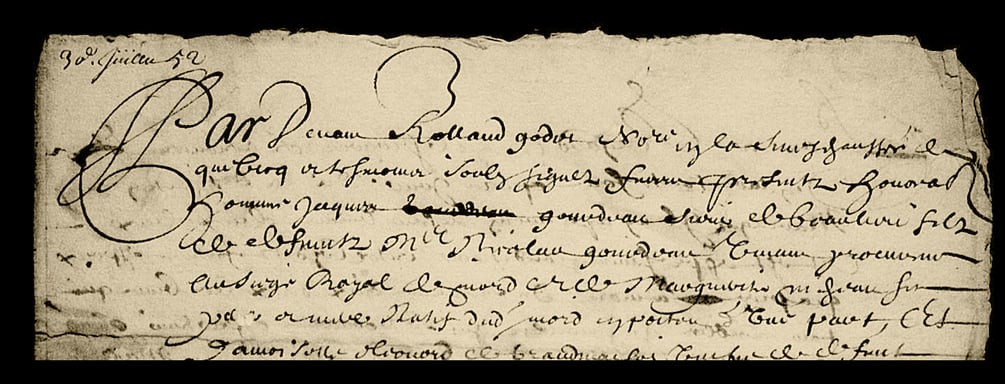 30e Juillet 52
Par Devant Rolland godet Nore en la Senechaussée de
quebecq et tesmoins soubz signez furent presentz honorable
homme Jacques gourdeau sieur de beaulieu filz
de deffunctz Me Nicolas gourdeau vivant procureur
au siege Royal de niord et de Marguerite
pere et mere Natif dud niord en poitou d'une part, Et
Damoiselle eleonord de grandmaison veufve de deffunt